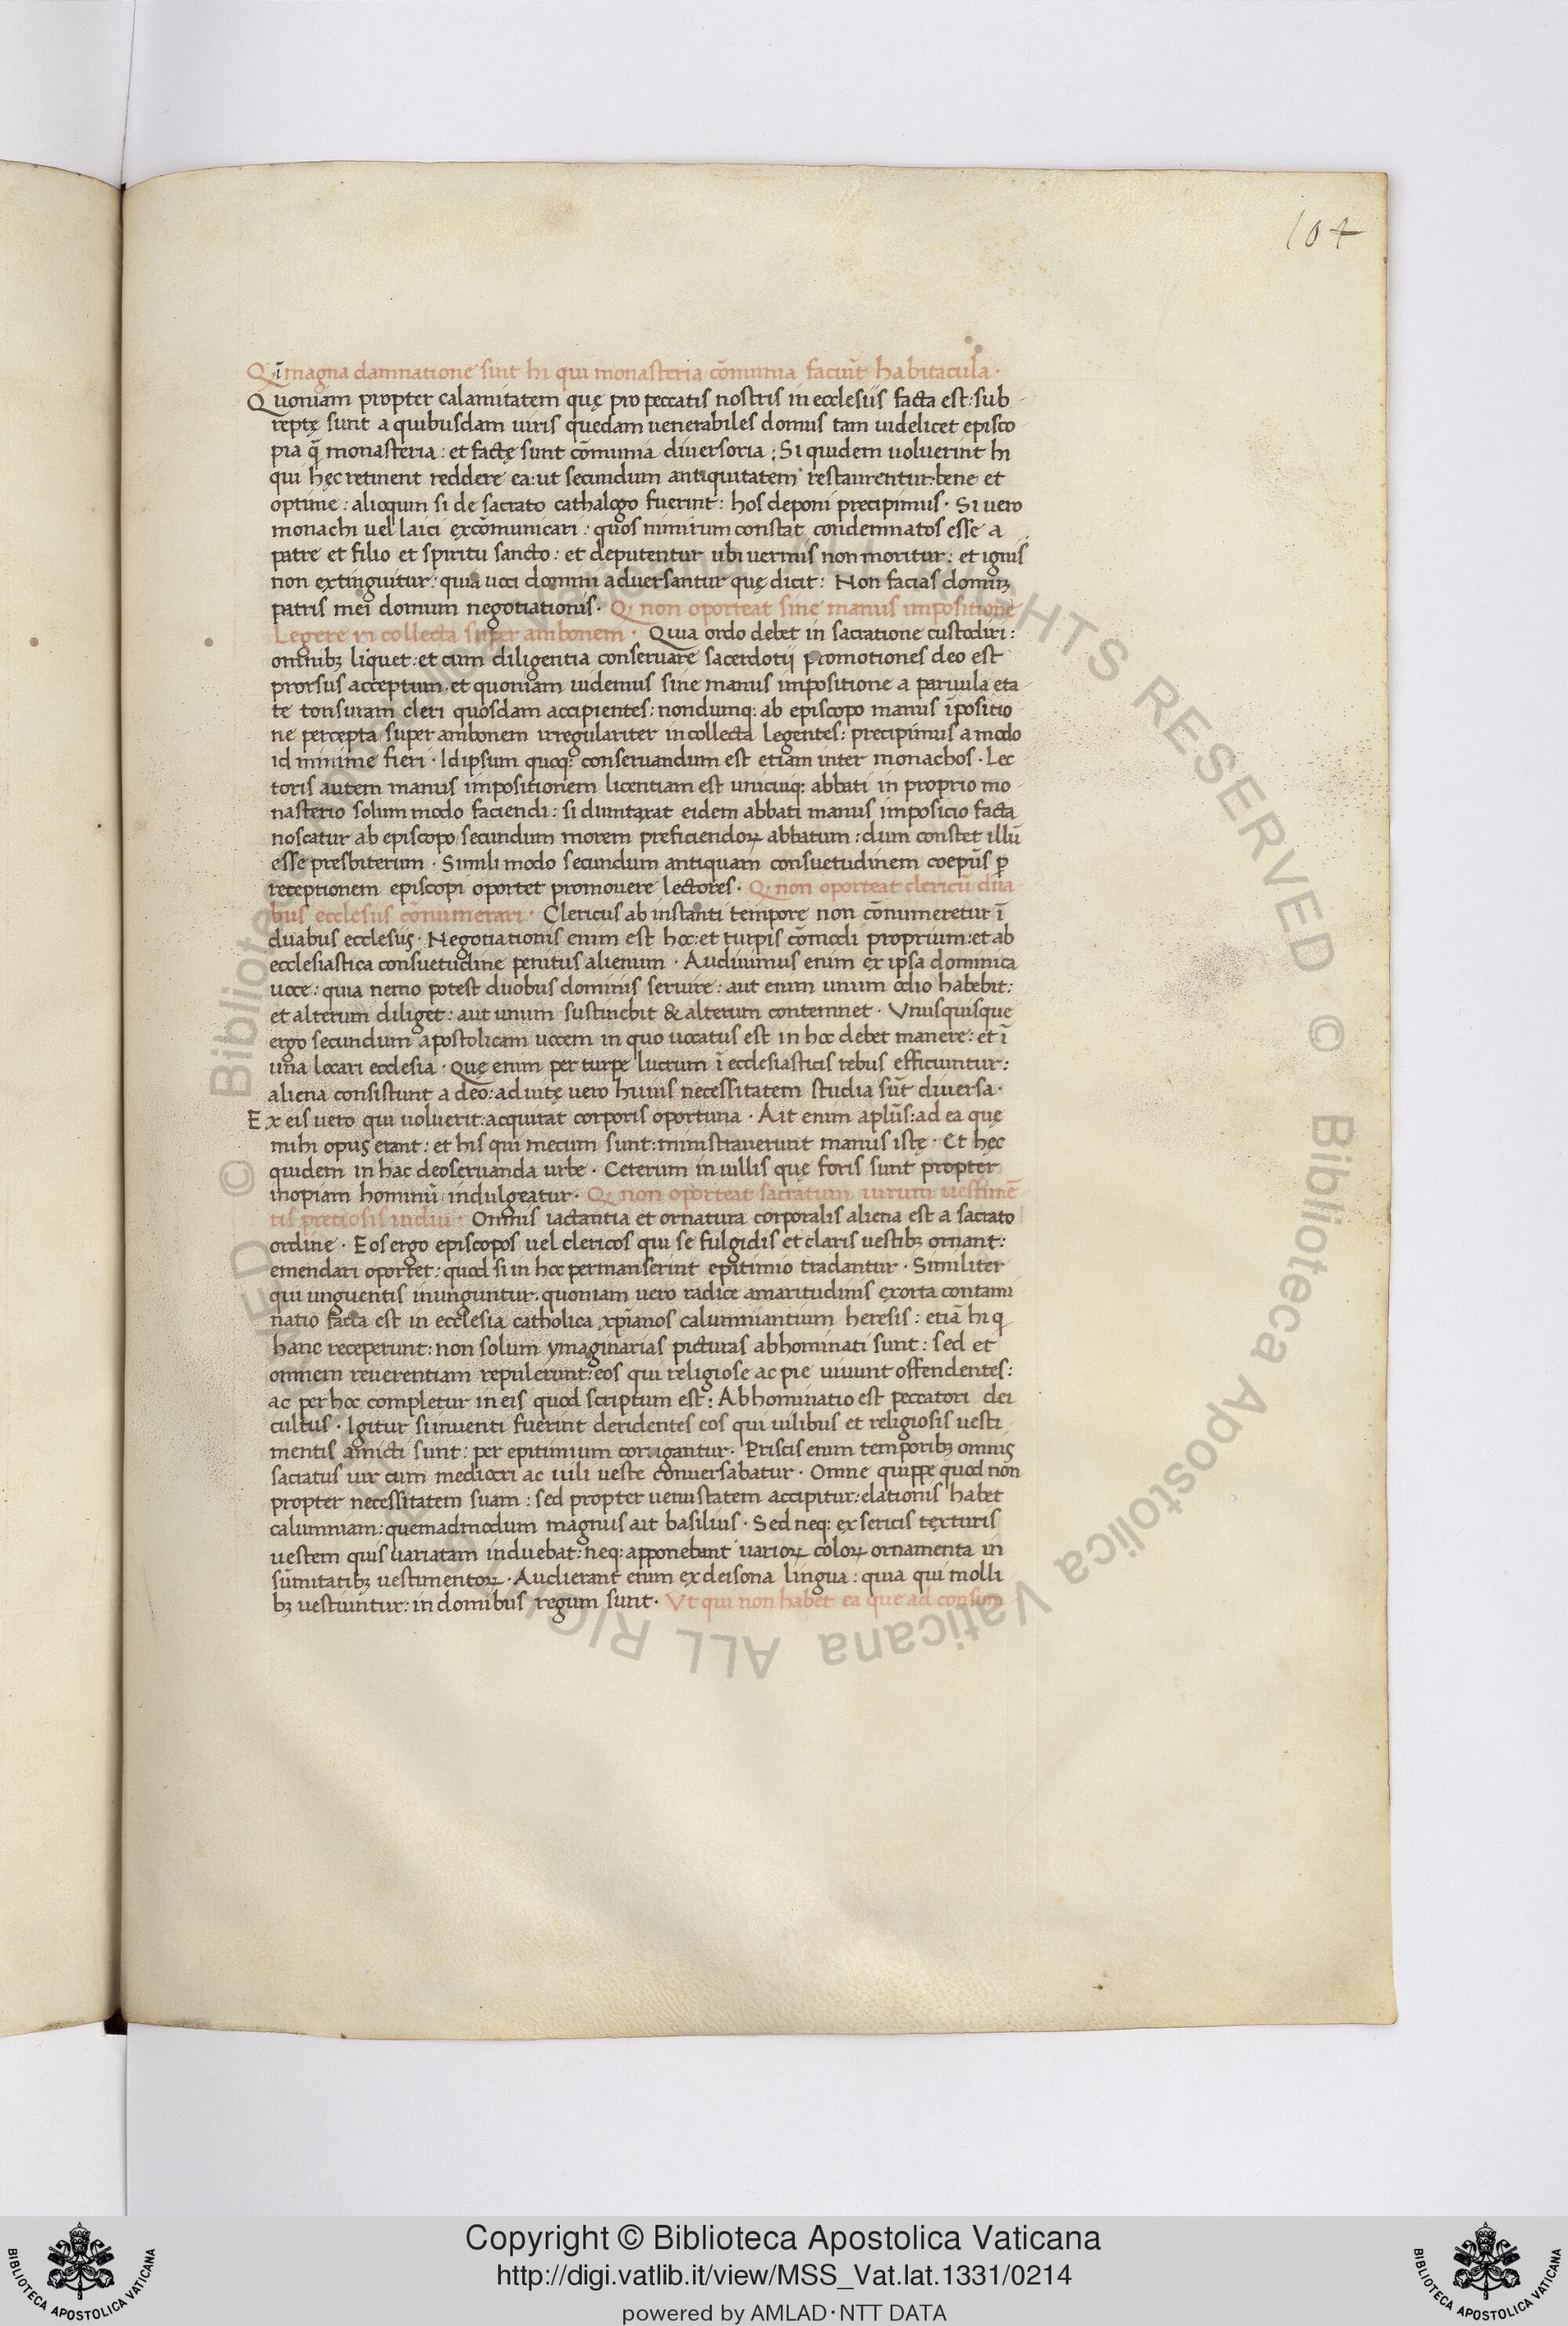 104
Q ī magna damnatione sint hi qui monasteria cōmunia faciūt habitacula·
Quoniam propter calamitatem quę pro peccatis nostris in ecclesiis facta est: sub
reptę sunt a quibusdam uiris quedam uenerabiles domus tam uidelicet episco
pia q̄ monasteria: et factę sunt cōmunia diuersoria; Si quidem uoluerint hi
qui hęc retinent reddere ea: ut secundum antiquitatem restaurentur: bene et
optime: alioquin si de sacrato cathalogo fuerint: hos deponi precipimus· Si uero
monachi uel laici excōmunicari: quos nimirum constat condemnatos esse a
patre et filio et spiritu sancto: et deputentur ubi uermis non moritur: et ignis
non extinguitur: quia uoci domini aduersantur quę dicit: Non facias domūꝫ
patris mei domum negotiationis· Q non oporteat sine manus impositione
Legere in collecta super ambonem· Quia ordo debet in sacratione custodiri:
omnibꝫ liquet: et cum diligentia conseruare sacerdotij promotiones deo est
prorsus acceptum· et quoniam uidemus sine manus impositione a paruula eta
te tonsuram cleri quosdam accipientes: nondumq: ab episcopo manus īpositio
ne percepta super ambonem irregulariter in collecta legentes: precipimus a modo
id minime fieri· Idipsum quoq: conseruandum est etiam inter monachos· Lec
toris autem manus impositionem licentiam est unicuiq: abbati in proprio mo
nasterio solum modo faciendi: si dumtaxat eidem abbati manus imposicio facta
noscatur ab episcopo secundum morem preficiendoꝝ abbatum: dum constet illū
esse presbiterum· Simili modo secundum antiquam consuetudinem coepūs ꝑ
receptionem episcopi oportet promouere lectores· Q non oporteat clericū dua
bus ecclesiis cōnumerari· Clericus ab instanti tempore non cōnumeretur ī
duabus ecclesiis· Negotiationis enim est hoc: et turpis cōmodi proprium: et ab
ecclesiastica consuetudine penitus alienum· Audiuimus enim ex ipsa dominica
uoce: quia nemo potest duobus dominis seruire: aut enim unum odio habebit:
et alterum diliget: aut unum sustinebit & alterum contemnet· Vnusquisque
ergo secundum apostolicam uocem in quo uocatus est in hoc debet manere: et ī
una locari ecclesia· Quę enim per turpe lucrum ī ecclesiasticis rebus efficiuntur:
aliena consistunt a deo: ad uitę uero huius necessitatem studia sūt diuersa·
Ex eis uero qui uoluerit: acquirat corporis oportuna· Ait enim aplūs: ad ea quę
mihi opus erant: et his qui mecum sunt: ministrauerunt manus istę· Et hęc
quidem in hac deoseruanda urbe· Ceterum in uillis quę foris sunt propter
inopiam hominū indulgeatur· Q non oporteat sacratum uirum uestimē
tis preciosis indui· Omnis iactantia et ornatura corporalis aliena est a sacrato
ordine· Eos ergo episcopos uel clericos qui se fulgidis et claris uestibꝫ ornant:
emendari oportet: quod si in hoc permanserint epitimio tradantur· Similiter
qui unguentis inunguntur· quoniam uero radice amaritudinis exorta contami
natio facta est in ecclesia catholica xp̄ianos calumniantium heresis: etiā hi q
hanc receperunt: non solum ymaginarias picturas abhominati sunt: sed et
omnem reuerentiam repulerunt: eos qui religiose ac pie uiuunt offendentes:
ac per hoc completur in eis quod scriptum est: Abhominatio est peccatori dei
cultus· Igitur si inuenti fuerint deridentes eos qui uilibus et religiosis uesti
mentis amicti sunt: per epitimium corrigantur· Priscis enim temporibꝫ omnis
sacratus uir cum mediocri ac uili ueste conuersabatur· Omne quippe quod non
propter necessitatem suam: sed propter uenustatem accipitur: elationis habet
calumniam: quemadmodum magnus ait basilius· Sed neq: ex sericis texturis
uestem quis uariatam induebat: neq: apponebant uarioꝝ coloꝝ ornamenta in
sūmitatibꝫ uestimentoꝝ· Audierant enim ex deisona lingua: quia qui molli
bꝫ uestiuntur: in domibus regum sunt· Vt qui non habet ea que ad consum
Copyright © Biblioteca Apostolica Vaticana
http://digi.vatlib.it/view/MSS_Vat.lat.1331/0214
powered by AMLAD·NTT DATA
BIBLIOTECA APOSTOLICA VATICANA
BIBLIOTECA APOSTOLICA VATICANA
© Biblioteca Apostolica Vaticana ALL RIGHTS RESERVED © Biblioteca Apostolica Vaticana ALL RIGHTS RESERVED